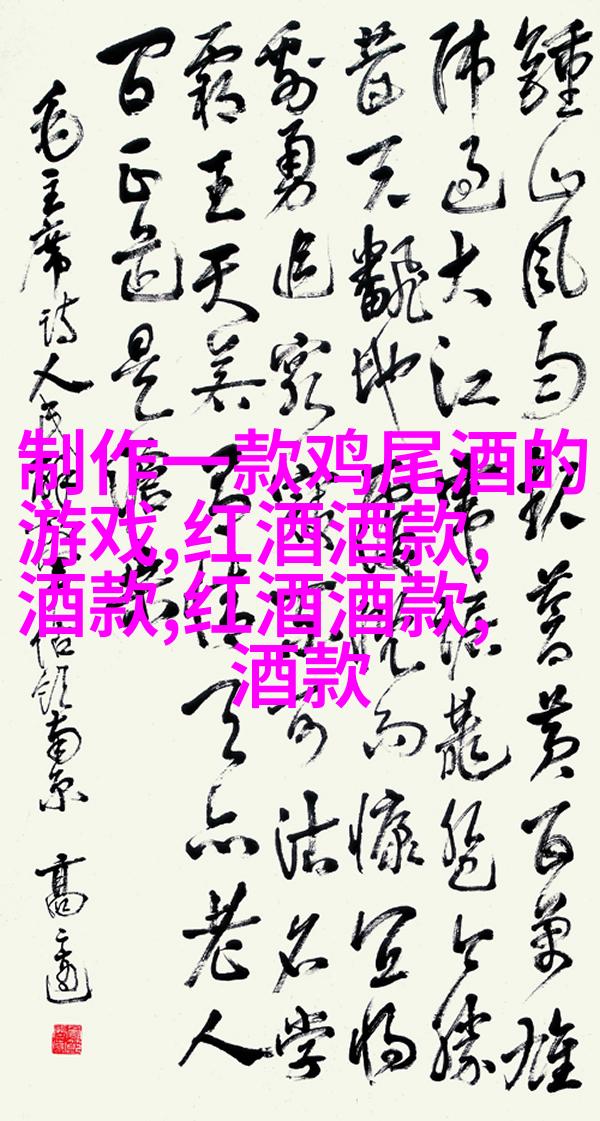 鍾山风雨起蒼黄百萬雄
师过大江虎踞龍盘今勝
昔天翻地覆慨而慷宜将
剩勇追穷寇不可沽名学
霸王天若有情天亦老人
间正道是滄桑
毛主席诗人民解放军占领南京
制作一款鸡尾酒的
游戏,红酒酒款,
酒款,红酒酒款,
酒款